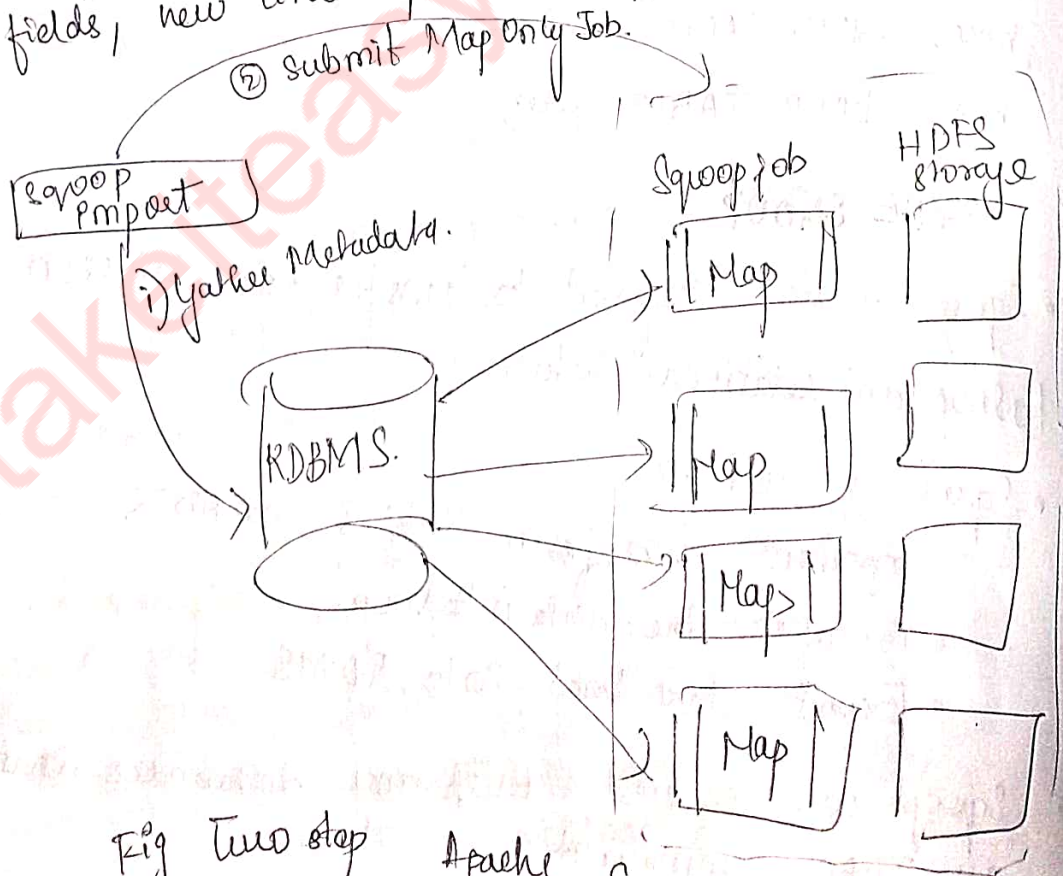 fields, new
② Submit Map Only Job.
Sqoop
Import
i) Gather Metadata.
RDBMS.
Sqoop job
HDFS
Storage
Map
Map
Map
Map
Fig Two step Apache
takeiteasy